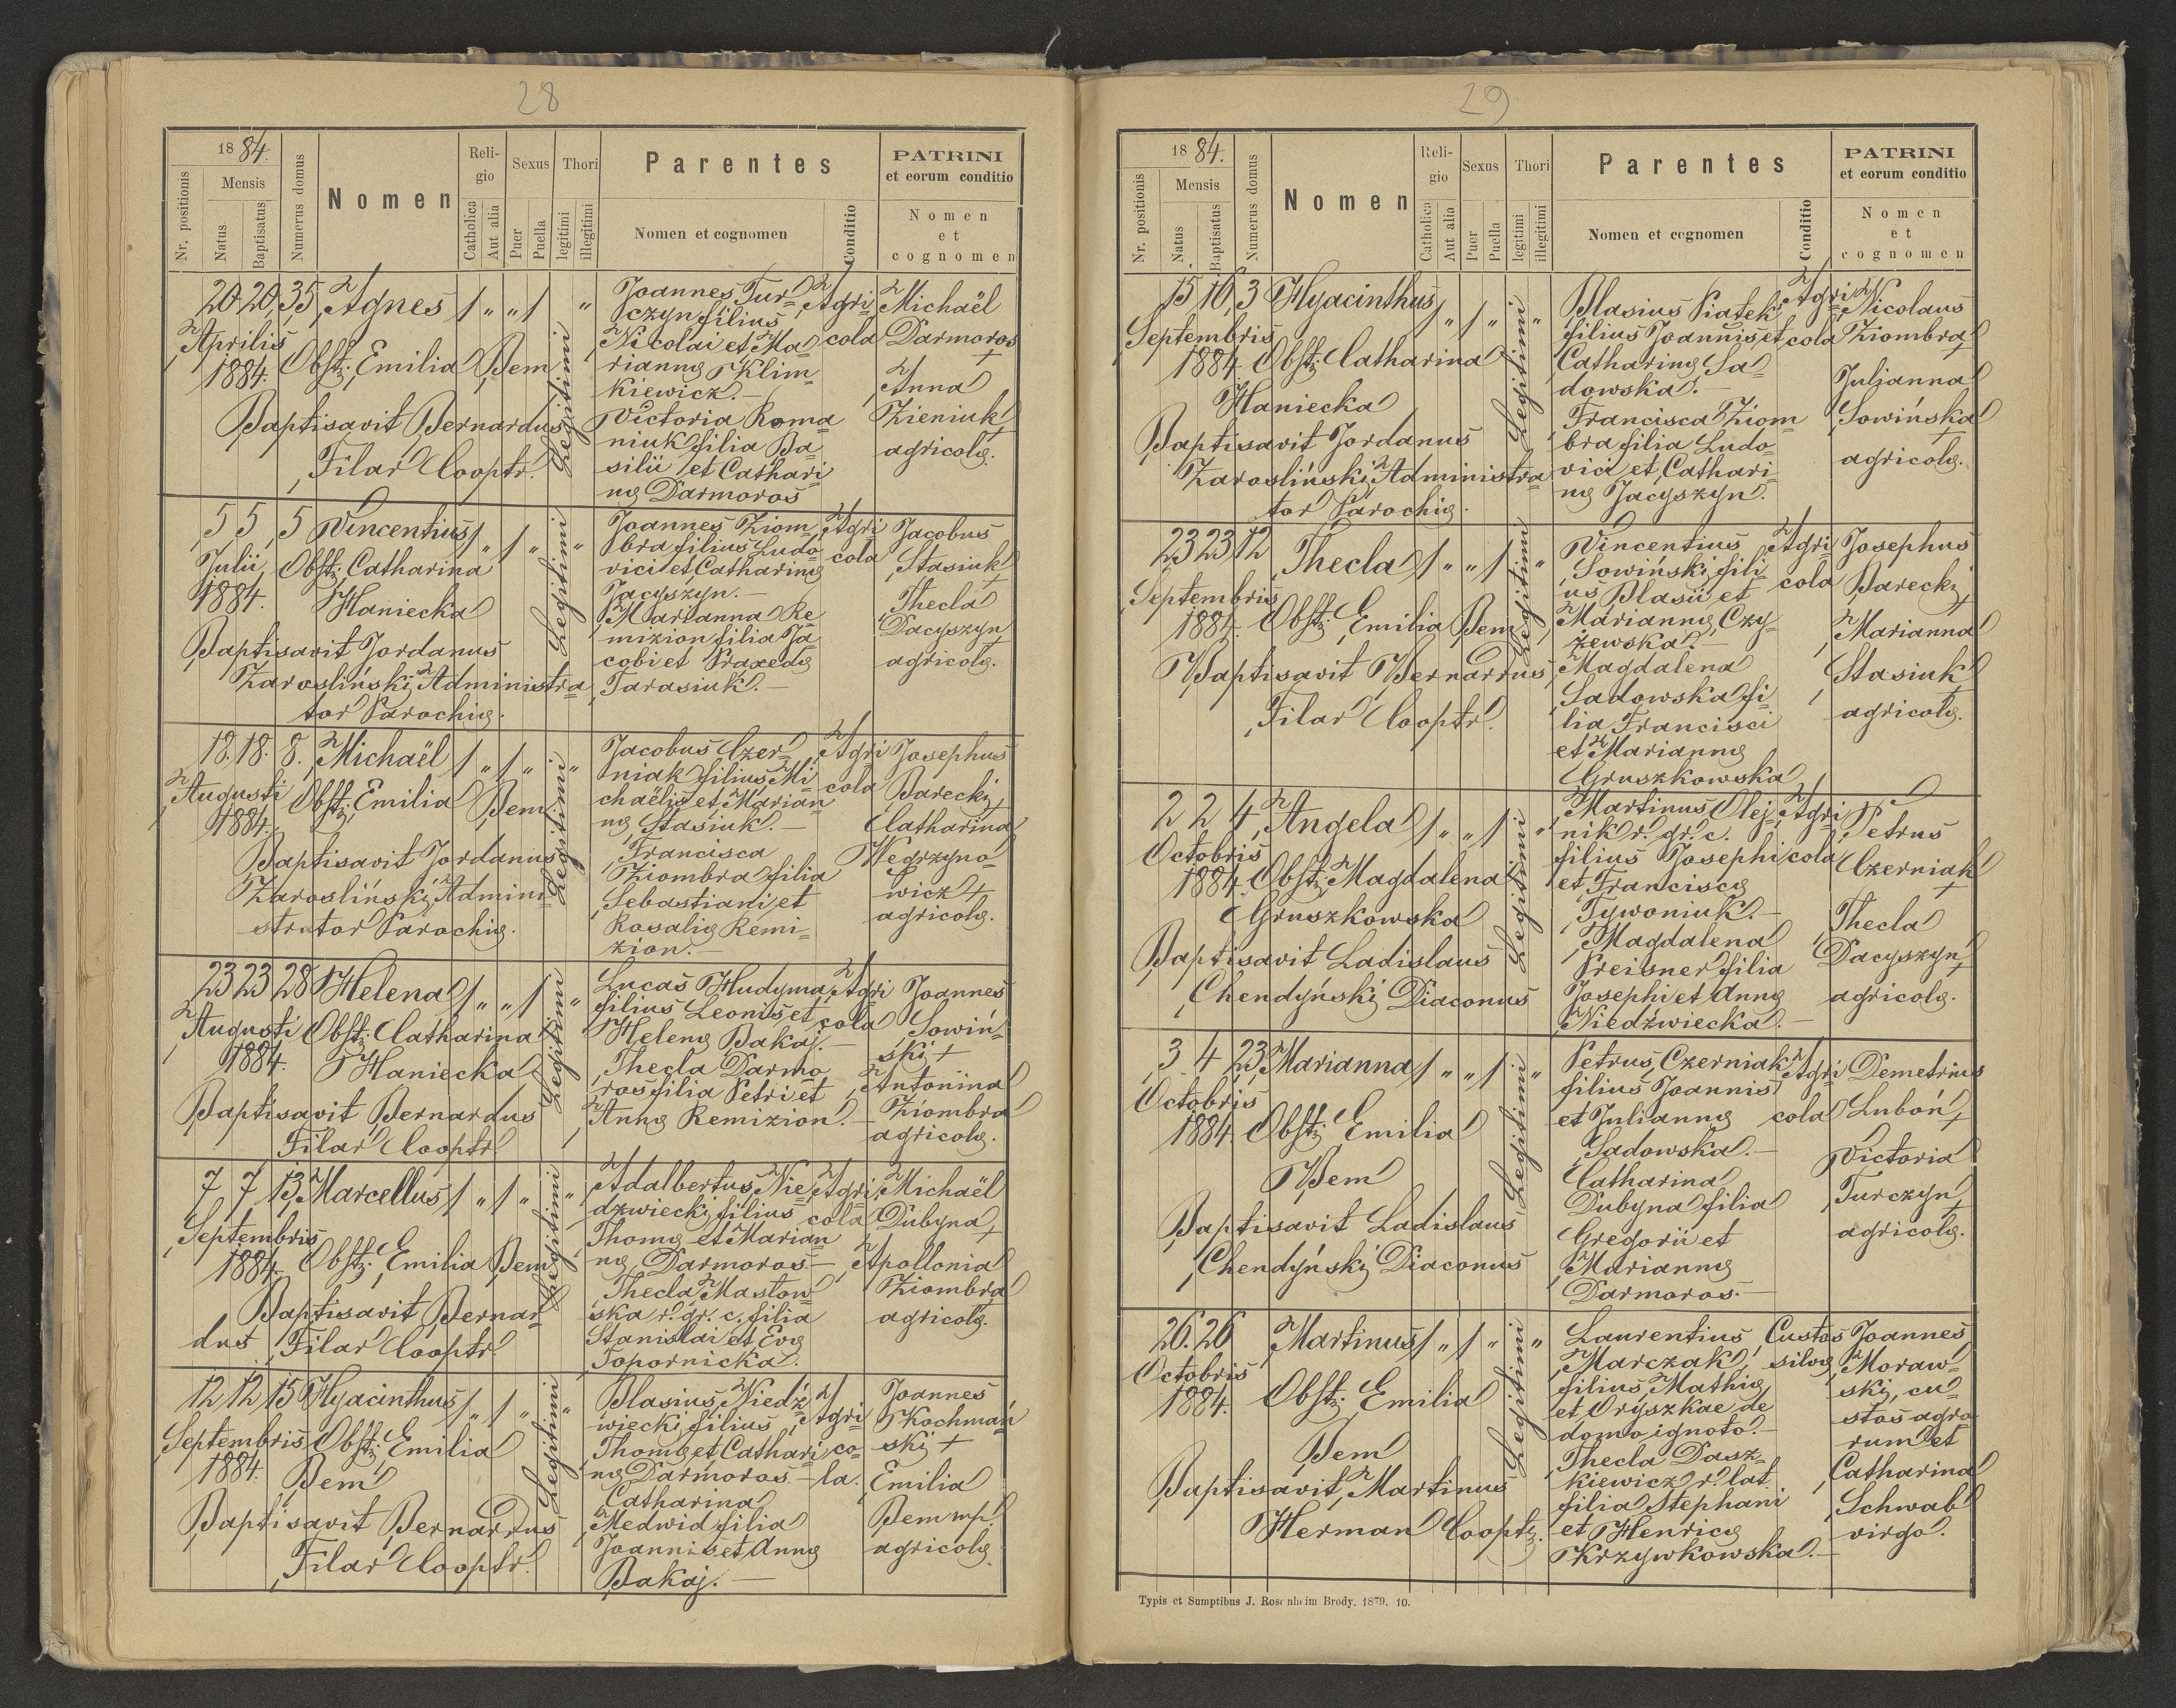 28
1884.
Nr. positionis
Mensis
Natus
Baptisatus
Numerus domus
Nomen
Religio
Catholica
Aut alia
Sexus
Puer
Puella
Thori
legitimi
illegitimi
Parentes
Nomen et cognomen
Conditio
PATRINI
et eorum conditio
Nomen
et
cognomen
20 20 35 Agnes 1 " " 1 "
Aprilis
1884.
Obst: Emilia Bem
Baptisavit Bernardus
Filar Cooptr.
Legitimi
Joannes Tur=
czyn filius
Nicolai et Ma=
rianna Klim=
kiewicz.—
Victoria Roma=
niuk filia Ba=
silii et Cathari=
na Darmoros
Agri=
cola
Michaël
Darmoros
+
Anna
Zieniuk
+
agricolæ.
5 5 5 Vincentius 1 " 1 " "
Julii
1884.
Obst: Catharina
Haniecka
Baptisavit Jordanus
Zarosliński Administra=
tor Parochiæ.
Legitimi
Joannes Ziom=
bra filius Ludo=
vici et Catharinæ
Jacyszyn.—
Marianna Re=
mizion filia Ja=
cobi et Praxedæ
Tarasiuk.—
Agri=
cola
Jacobus
Stasiuk
+
Thecla
Dacyszyn
+
agricolæ.
18. 18. 8. Michaël 1 " 1 " "
Augusti
1884.
Obst: Emilia Bem
Baptisavit Jordanus
Zarosliński Admini=
strator Parochiæ.
Legitimi
Jacobus Czer=
niak filius Mi=
chaëlis et Marian=
næ Stasiuk.—
Francisca
Ziombra filia
Sebastiani et
Rosaliæ Remi=
zion.—
Agri=
cola
Josephus
Barecki
+
Catharina
Węgrzyno=
wicz +
agricolæ.
23 23 28 Helena 1 " " 1 "
Augusti
1884.
Obst: Catharina
Haniecka
Baptisavit Bernardus
Filar Cooptr.
Legitimi
Lucas Hudyma
filius Leonis et
Helenæ Bakaj.—
Thecla Darmo=
ros filia Petri et
Annæ Remizion.—
Agri=
cola
Joannes
Sowiń=
ski +
Antonina
Ziombra
agricolæ.
7 7 13 Marcellus 1 " 1 " "
Septembris
1884.
Obst: Emilia Bem
Baptisavit Bernar=
dus Filar Cooptr.
Legitimi
Adalbertus Nie=
dzwiecki filius
Thomæ et Marian=
næ Darmoros—
Thecla Mastow=
ska r. gr. c. filia
Stanislai et Evæ
Topornicka.
Agri=
cola
Michaël
Dubyna
+
Apollonia
Ziombra
agricolæ.
12 12 15 Hyacinthus 1 " 1 " "
Septembris
1884.
Obst: Emilia
Bem
Baptisavit Bernardus
Filar Cooptr.
Legitimi
Blasius Niedź=
wiecki filius
Thomæ et Cathari=
næ Darmoros.—
Catharina
Medwid filia
Joannis et Annæ
Bakaj.—
Agri=
co=
la.
Joannes
Kochmań=
ski +
Emilia
Bem mp.
agricolæ.
29
1884.
Nr. positionis
Mensis
Natus
Baptisatus
Numerus domus
Nomen
Religio
Catholica
Aut alia
Sexus
Puer
Puella
Thori
legitimi
illegitimi
Parentes
Nomen et cognomen
Conditio
PATRINI
et eorum conditio
Nomen
et
cognomen
15 16 3 Hyacinthus 1 " 1 " "
Septembris
1884.
Obst: Catharina
Haniecka
Baptisavit Jordanus
Zarosliński Administra=
tor Parochiæ.
Legitimi
Blasius Piątek
filius Joannis et
Catharinæ Sa=
dowska.—
Francisca Ziom=
bra filia Ludo=
vici et Cathari=
næ Jacyszyn.
Agri=
cola
Nicolaus
Ziombra
+
Julianna
Sowińska
+
agricolæ.
23 23 12 Thecla 1 " " 1 "
Septembris
1884.
Obst: Emilia Bem
Baptisavit Bernardus
Filar Cooptr.
Legitimi
Vincentius
Sowiński fili=
us Blasii et
Mariannæ Czy=
żewska.—
Magdalena
Sadowska fi=
lia Francisci
et Mariannæ
Gruszkowska
Agri=
cola
Josephus
Barecki
+
Marianna
Stasiuk
+
agricolæ.
2 2 4 Angela 1 " " 1 "
Octobris
1884.
Obst: Magdalena
Gruszkowska
Baptisavit Ladislaus
Chendyński Diaconus
Legitimi
Martinus Olej=
nik r. gr. c.
filius Josephi
et Franciscæ
Tywoniuk.—
Magdalena
Preisner filia
Josephi et Annæ
Niedźwiecka.—
Agri=
cola
Petrus
Czerniak
+
Thecla
Dacyszyn
+
agricolæ.
3 4 23 Marianna 1 " " 1 "
Octobris
1884
Obst: Emilia
Bem
Baptisavit Ladislaus
Chendyński Diaconus
Legitimi
Petrus Czerniak
filius Joannis
et Juliannæ
Sadowska.—
Catharina
Dubyna filia
Gregorii et
Mariannæ
Darmoros.—
Agri=
cola
Demetrius
Luboń
+
Victoria
Turczyn
+
agricolæ.
26. 26 Martinus 1 " 1 " "
Octobris
1884.
Obst: Emilia
Bem
Baptisavit Martinus
Herman Cooptr.
Legitimi
Laurentius
Marczak,
filius Mathiæ
et Oryszkae de
domo ignoto.—
Thecla Dasz=
kiewicz r. lat.
filia Stephani
et Henricæ
Krzywkowska.—
Custos
silvæ
Joannes
Moraw=
ski, cu=
stos agro=
rum et
Catharina
Schwab
virgo.
Typis et Sumptibus J. Rosenheim Brody. 1879. 10.